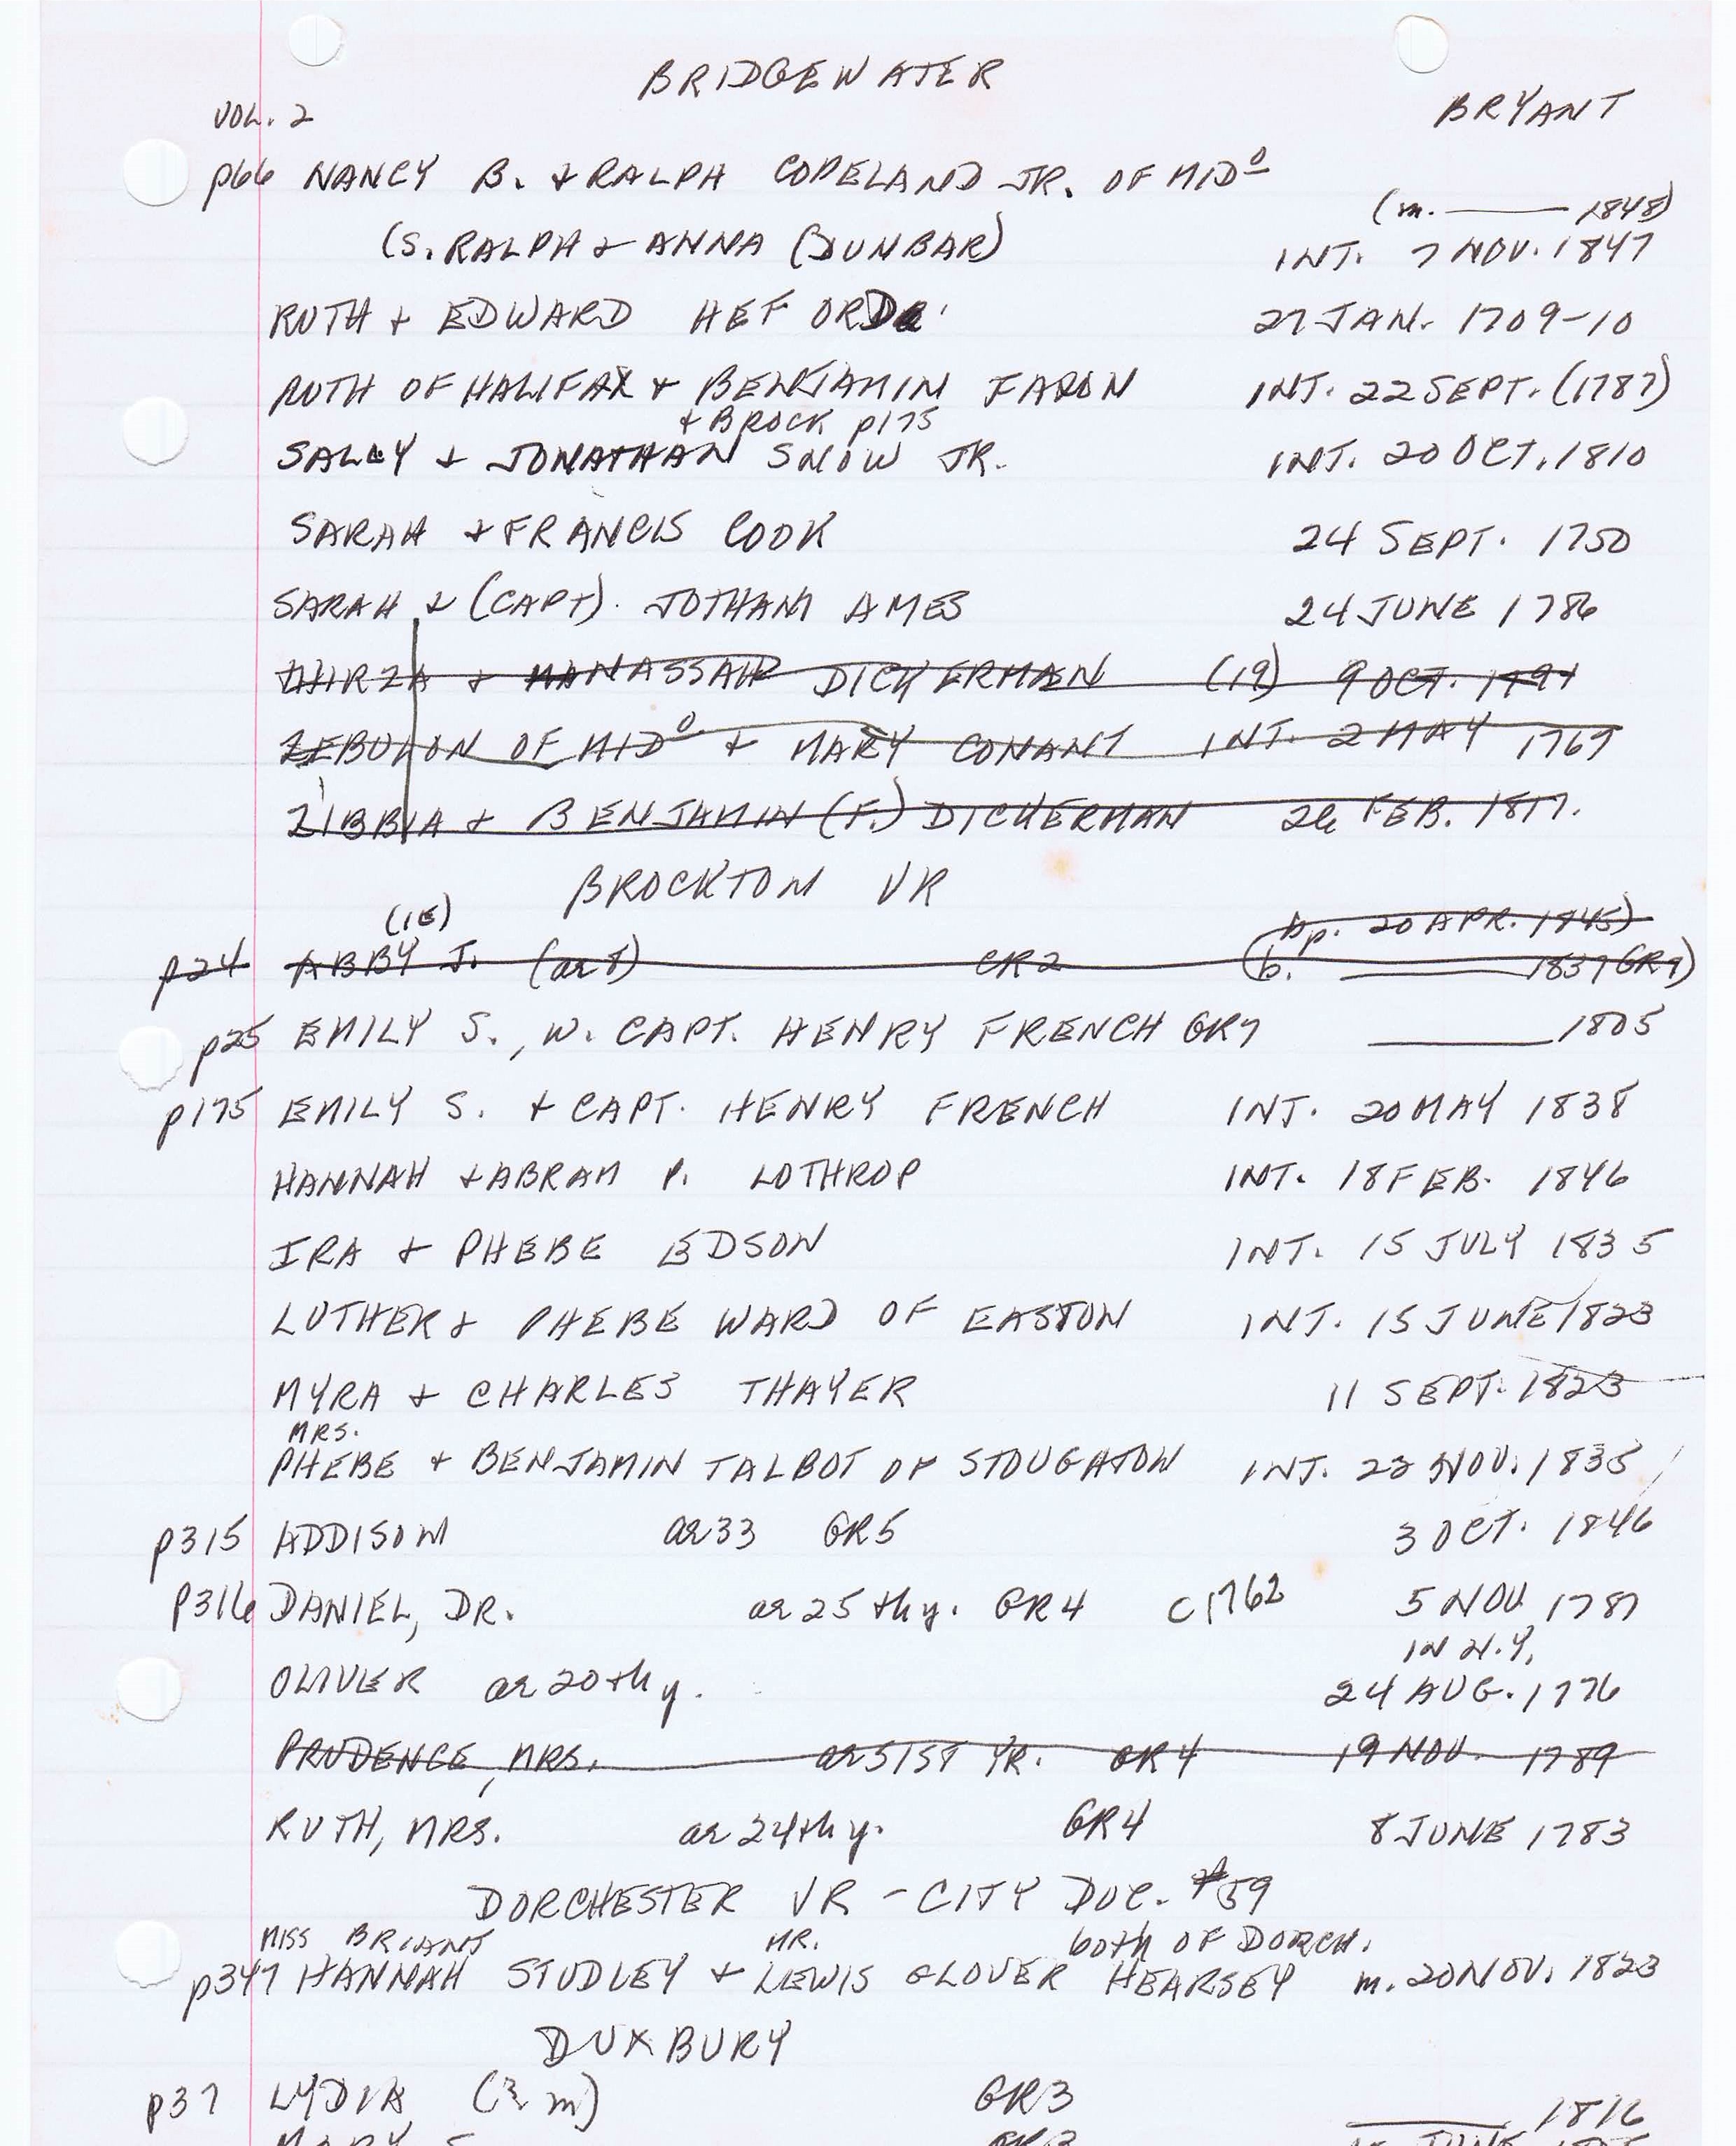 BRIDGEWATER
VOL. 2 BRYANT
p66 NANCY B. + RALPH COPELAND JR. OF MIDº
(m. —— 1848)
(S. RALPH + ANNA (DUNBAR) INT. 7 NOV. 1847
RUTH + EDWARD HEFORD 27 JAN. 1709-10
RUTH OF HALIFAX + BENJAMIN FARON INT. 22 SEPT. (1787)
+ BROCK p175
SALLY + JONATHAN SNOW JR. INT. 20 OCT. 1810
SARAH + FRANCIS COOK 24 SEPT. 1750
SARAH + (CAPT). JOTHAM AMES 24 JUNE 1786
THIRZA + MANASSAH DICKERMAN (19) 9 OCT. 1791
ZEBULON OF MIDº + MARY CONANT INT. 2 MAY 1769
ZIBBIA + BENJAMIN (F.) DICKERMAN 26 FEB. 1817.
BROCKTON VR
(IE) (bp. 20 APR. 1845)
p24 ABBY J. (ae 8) CR2 (b. —— 1837 GR7)
p25 EMILY S., W. CAPT. HENRY FRENCH GR7 —— 1805
p175 EMILY S. + CAPT. HENRY FRENCH INT. 20 MAY 1838
HANNAH + ABRAM P. LOTHROP INT. 18 FEB. 1846
IRA + PHEBE EDSON INT. 15 JULY 1835
LUTHER + PHEBE WARD OF EASTON INT. 15 JUNE 1823
MYRA + CHARLES THAYER 11 SEPT. 1823
MRS.
PHEBE + BENJAMIN TALBOT OF STOUGHTON INT. 22 NOV. 1835
p315 ADDISON ae 33 GR5 3 OCT. 1846
p316 DANIEL, DR. ae 25th y. GR4 C1762 5 NOV 1787
IN N.Y.
OLIVER ae 20th y. 24 AUG. 1776
PRUDENCE, MRS. ae 51ST YR. GR4 19 NOV. 1789
RUTH, MRS. ae 24th y. GR4 8 JUNE 1783
DORCHESTER VR - CITY DOC. #59
MISS BRIANT MR. both OF DORCH.
p347 HANNAH STUDLEY + LEWIS GLOVER HEARSEY m. 20 NOV. 1823
DUXBURY
p37 LYDIA (2 m) GR3 —— 1816